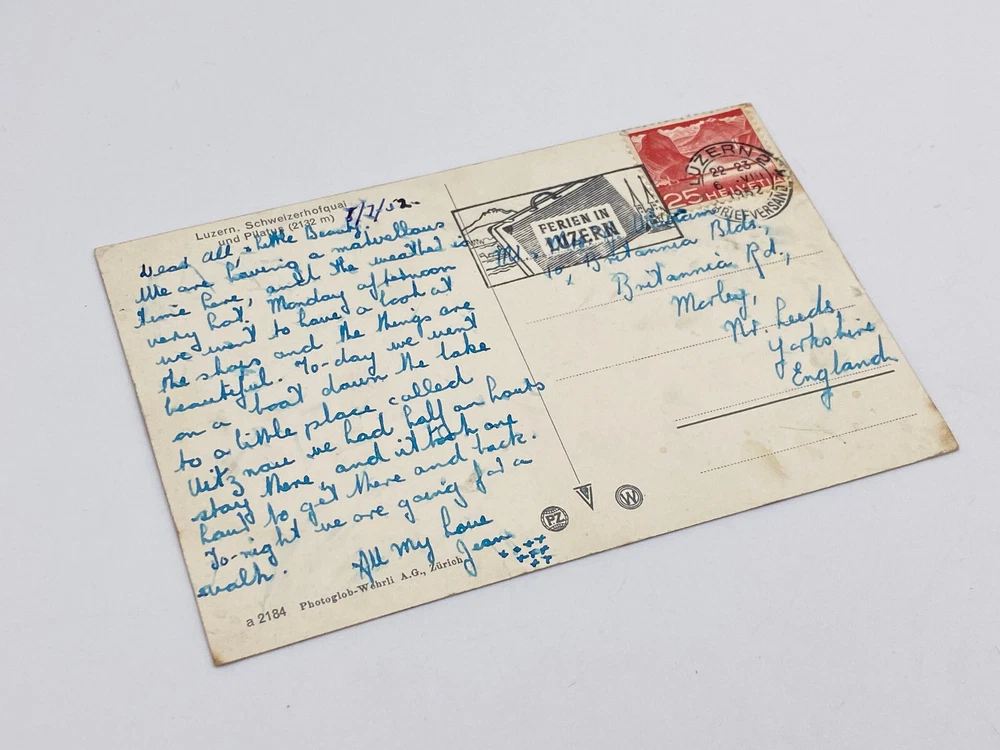 Luzern, Schweizerhofquai
und Pilatus (2132 m)
52.
Dear all, & little Beauty,
We are having a marvellous
time here, and the weather is
very hot. Monday afternoon
we went to have a look at
the shops and the things are
beautiful. To-day we went
on a boat down the lake
to a little place called
Vitznau we had half an hours
stay there, and it took one
hour to get there and back.
To-night we are going for a
walk.
All My Love
Jean
a 2184 Photoglob-Wehrli A.G., Zürich
PZ
W
FERIEN IN
LUZERN
25 HELVETIA
LUZERN 2
22-23
6. VIII
1952
BRIEFVERSAND
Britannia Blds.,
Britannia Rd.,
Morley,
Nr. Leeds,
Yorkshire
England